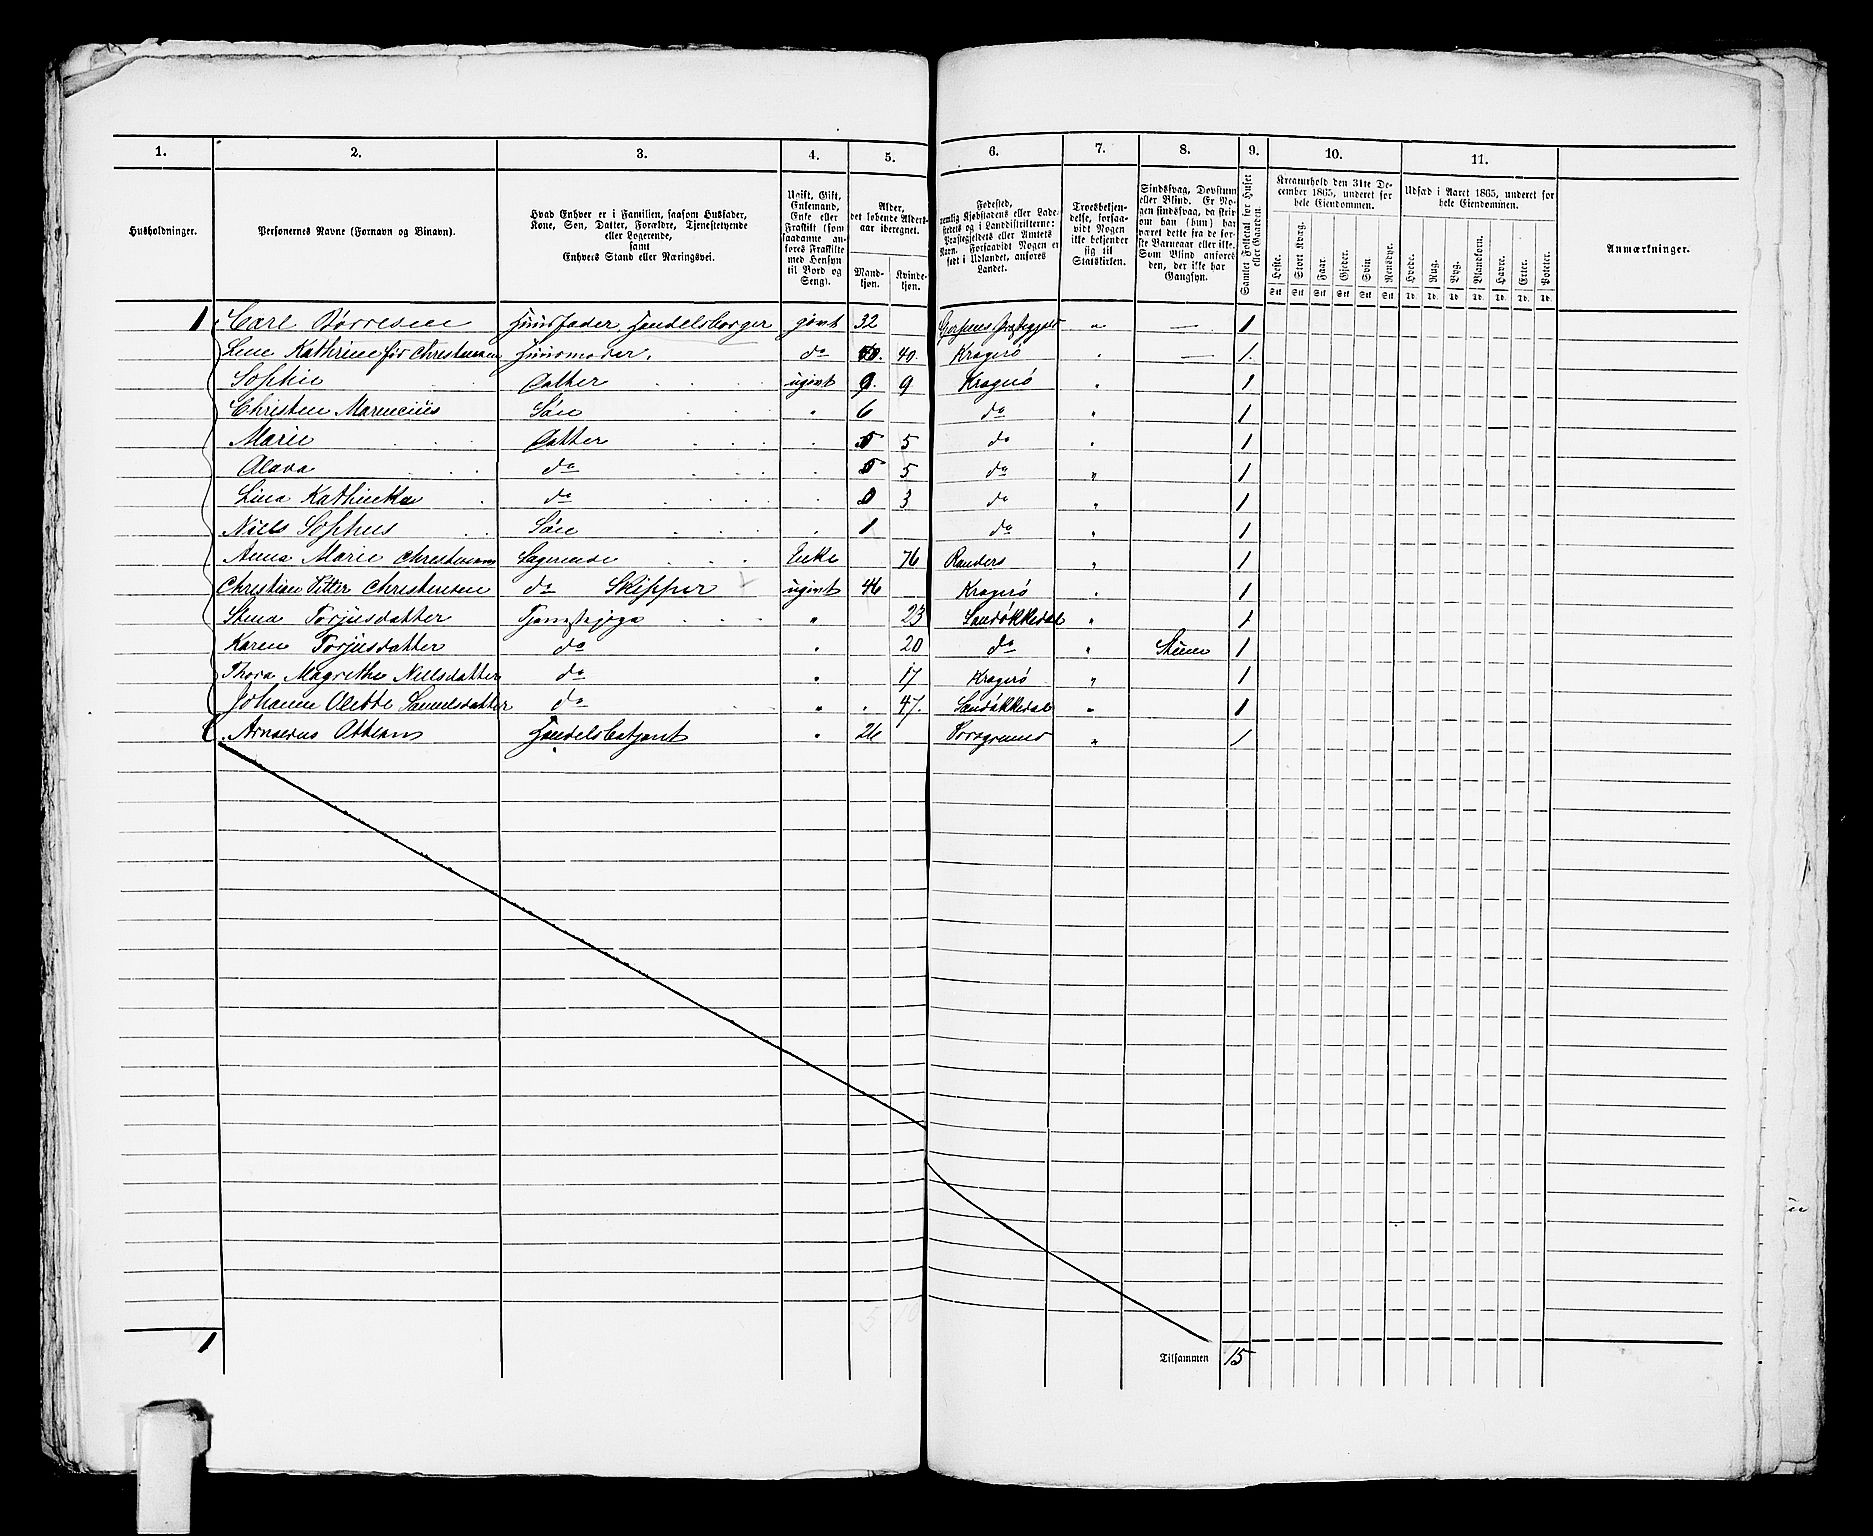 1. 2. 3. 4. 5. 6. 7. 8. 9. 10. 11.
Husholdninger.
Personernes Navne (Fornavn og Binavn).
Hvad Enhver er i Familien, saasom Husfader,
Kone, Søn, Datter, Forældre, Tjenestetyende
eller Logerende,
samt
Enhvers Stand eller Næringsvei.
Ugift, Gift,
Enkemand,
Enke eller
Fraskilt (som
saadanne an-
føres Fraskilte
med Hensyn
til Bord og
Seng).
Alder,
det løbende Alders-
aar iberegnet.
Mand-
kjøn.
Kvinde-
kjøn.
Fødested,
nemlig Kjøbstadens eller Lade-
stedets og i Landdistrikterne:
Præstegjeldets eller Amtets
Navn. Forsaavidt Nogen er
født i Udlandet, anføres
Landet.
Troesbekjen-
delse, forsaa-
vidt Nogen
ikke bekjender
sig til
Statskirken.
Sindssvag, Døvstum
eller Blind. Er No-
gen sindssvag, da skriv
om han (hun) har
været dette fra de før-
ste Barneaar eller ikke.
Som Blind anføres
den, der ikke har
Gangsyn.
Samlet Folketal for Huset
eller Gaarden.
Kreaturhold den 31te De-
cember 1865, underet for
hele Eiendommen.
Heste. Stort Kvæg. Faar. Gjeder. Svin. Rensdyr.
Stk Stk Stk Stk Stk Stk
Udsæd i Aaret 1865, underet for
hele Eiendommen.
Hvede. Rug. Byg. Blandkorn. Havre. Erter. Poteter.
Td. Td. Td. Td. Td. Td. Td.
Anmærkninger.
1 Carl Børresen Huusfader Handelsborger givt 32 Gjerpens Præstegjeld " — 1
Lene Kathrine før Christensen Huusmoder. do 40. Kragerø " — 1
Sophie Datter ugivt 9 Kragerø " 1
Christen Marencius Søn " 6 do " 1
Marie Datter 5 do " 1
Alava do 5 do " 1
Lina Kathinka do 3 do " 1
Niels Sophus Søn 1 do " 1
Anna Marie Christensen Logerende Enke 76 Randers " 1
Christian Petter Christensen do Skipper ugivt 46 Kragerø " 1
Stena Torjusdatter Tjenstepige " 23 Sandøkkedal " 1
Karen Torjusdatter do " 20 do " Stum 1
Thora Magrethe Nielsdatter do " 17 Kragerø " 1
Johanne Olette Samuelsdatter do " 47. Sandøkkedal " 1
Handelsbetjent " 26 Porsgrund " 1
1
Tilsammen 15